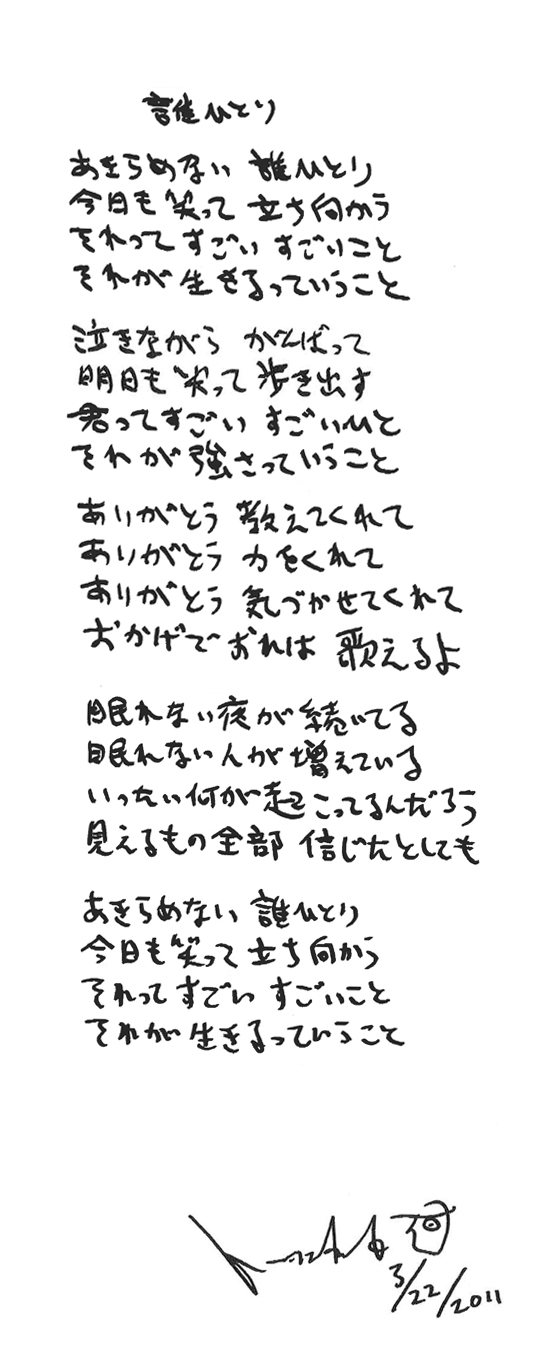 誰ひとり
あきらめない 誰ひとり
今日も 笑って 立ち向かう
それって すごい すごいこと
それが 生きるっていうこと
泣きながら がんばって
明日も 笑って 歩き出す
君ってすごい すごいひと
それが 強さっていうこと
ありがとう 教えてくれて
ありがとう 力をくれて
ありがとう 気づかせてくれて
おかげで おれは 歌えるよ
眠れない夜が 続いてる
眠れない人が 増えている
いったい何が 起こってるんだろう
見えるもの全部 信じたとしても
あきらめない 誰ひとり
今日も 笑って 立ち向かう
それって すごい すごいこと
それが 生きるっていうこと
3/22/2011